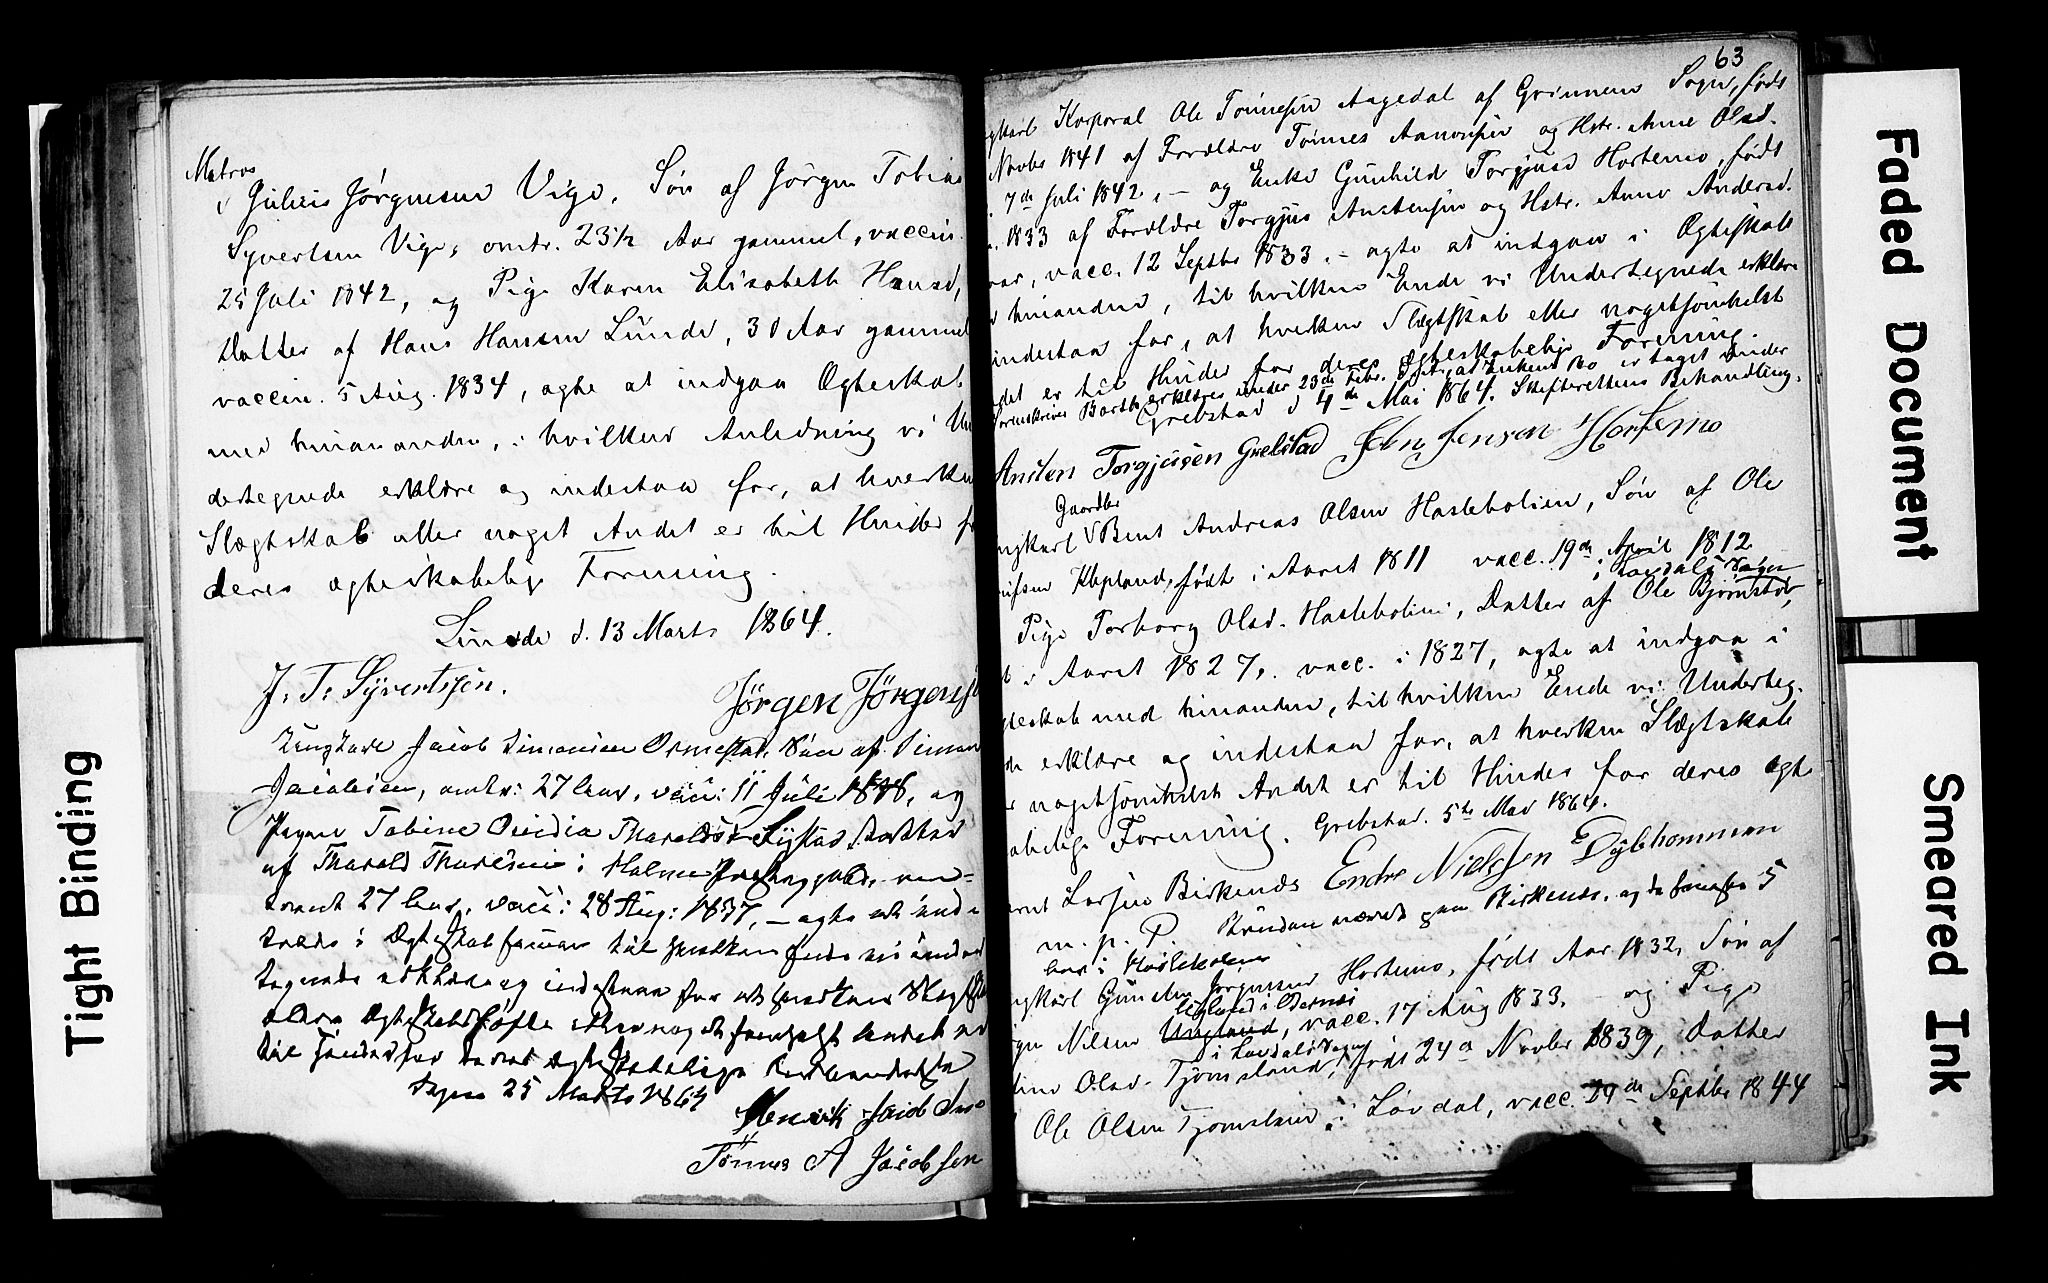 Matros
Julius Jörgensen Vige, Søn af Jörgen Tobias
Syvertsen Vige, omtr. 23½ Aar gammel, vaccin.
25 Juli 1842, og Pige Karen Elisabeth Hansd,
Datter af Hans Hansen Lunde, 30 Aar gammel
vaccin. 5 Aug. 1834, agte at indgaa Ægteskab
med hinanden, i hvilken Anledning vi Un
dertegnede erklære og indestaa for, at hverken
Slægtskab eller noget Andet er til Hinder f
deres ægteskabelige Forening.
Lunde d. 13 Marts 1864.
J. T. Syvertssen. Jörgen Jörgens
Ungkarl Jacob Simonsen Ormestad, Søn af Simon
Jacobsen, omtr: 27 Aar, vacc: 11 Juli 18, og
Pigen Tobine Tharaldsd Lystad Datter
af Tharald i Holme Præstegjæld, om-
trent 27 Aar, vacc: 28 Aug: 1837, – agte at ind
træde i Ægteskab til hvilken Ende vi under
tegnede erklære og indestaae for at hverken Slægtskab
eller Ægteskabsløfte eller noget Andet er
til Hinder for deres Ægteskabelige
25 Marts 1864
Henrik Jacobsen
Tönnes A Jacobsen
63
gkarl Korporal Ole Tønnesen Aagedal af Grinnem Sogn, født
Novbr 1841 af Forældre Tønnes Aanonsen og Hstr. Anne Olsd.
7de Juli 1842, – og Enke Gunhild Torgjusd Hortemo, født
1833 af Forældre Torgjus Austensen og Hstr. Anne Andersd.
vacc. 12 Septbr 1833. – agte at indgaa i Ægteskab
hinanden, til hvilken Ende vi Undertegnede erklære
indestaa for, at hverken Slægtskab eller nogetsomhelst
det er til Hinder for deres ægteskabelige Forening.
Sorenskriver Barth erklærer under 23de Febr. d. A., at Enkens Bo er taget under
Grebstad d 4de Mai 1864. Skifterettens Behandling.
Austen Torgjusen Grebstad John Jensen Hortemo
Gaardbr
ngkarl Bent Andreas Olsen Haslebolien, Søn af Ole
Klepland, født i Aaret 1811 vacc. 19de April 1812
i Lavdals Sogn
Pige Torborg Olsd. Haslebolien, Datter af Ole Bjørnstøl,
t i Aaret 1827, vacc. i 1827, agte at indgaa i
gteskab med hinanden, til hvilken Ende vi Underteg.
de erklære og indestaa for, at hverken Slægtskab
r nogetsomhelst Andet er til Hinder for deres ægte
abelige Forening. Grebstad. 5te Mai 1864.
Larsen Birkenes Endre Nielssen Dybhommen
m. p. P. Bruden været paa Birkenes, og de sidste 5
Aar i Haslebolien
ngkarl Gunsten Jørgensen Hortemo, født Aar 1832, Søn af
Ugland i
rgen Nilsen Ungland, vacc. 17 Aug 1833. – og Pige
i Lavdals Sogn
Olsd. Tjomsland, født 24de Novbr 1839, Datter
Ole Olsen Tjomsland i Løvdal, vacc. 29de Septbr 1844
Tight Binding
Faded Document
Smeared Ink